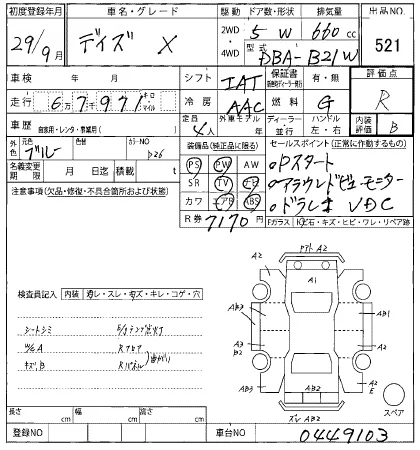 初度登録年月 車名・グレード 駆動 ドア数・形状 排気量 出品NO.
29/9月 デイズ X 2WD・4WD 5 W 660 cc 521
型式 DBA-B21W
車検 年 月 シフト IAT 保証書 有・無 評価点
走行 6万7千971 キロ・マイル 冷房 AAC 燃料 G R
車歴 自家用・レンタ・事業用( ) 定員 4人 外車モデル 年 ディーラー 並行 ハンドル 左・右 内装評価 B
外色 元色 ブルー 色替 カラーNO B26 装備品(純正品に限る) セールスポイント(正常に作動するもの)
名義変更期限 月 日迄 積載 t PS PW AW Pスタート
注意事項(欠品・修復・不具合箇所および状態) SR TV エアB アラウンドビュモニター
カワ エアロ ABS ドラレコ VDC
R券 7170円 Fガラス 飛石・キズ・ヒビ・ワレ・リペア跡
検査員記入 内装 汚レ・スレ・キズ・キレ・コゲ・穴
シートシミ
W/6 A Rフロア
キズ、B Rパネル 曲がり
A2 A2 A2
A1
AB3 AB1
A3
B2
AB3 AB2 A2
E
AB2
スペア
長さ cm 幅 cm 高さ cm
登録NO 車台NO 0449103